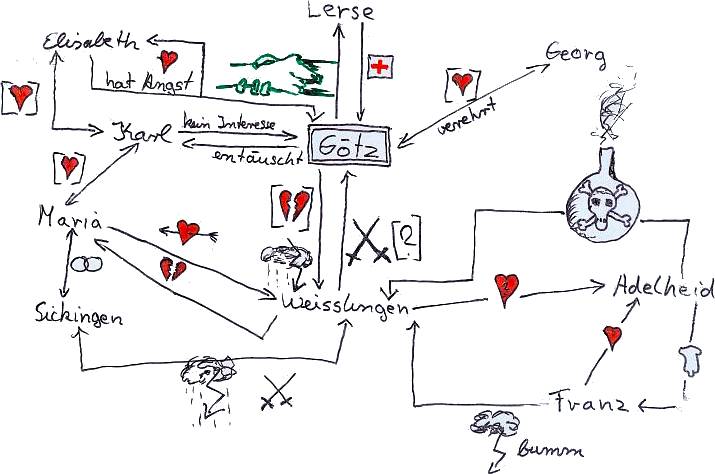 Lerse
Elisabeth
Georg
hat Angst
kein Interesse
verehrt
Karl
Götz
entäuscht
Maria
?
Weisslingen
Adelheid
Sickingen
Franz
bumm